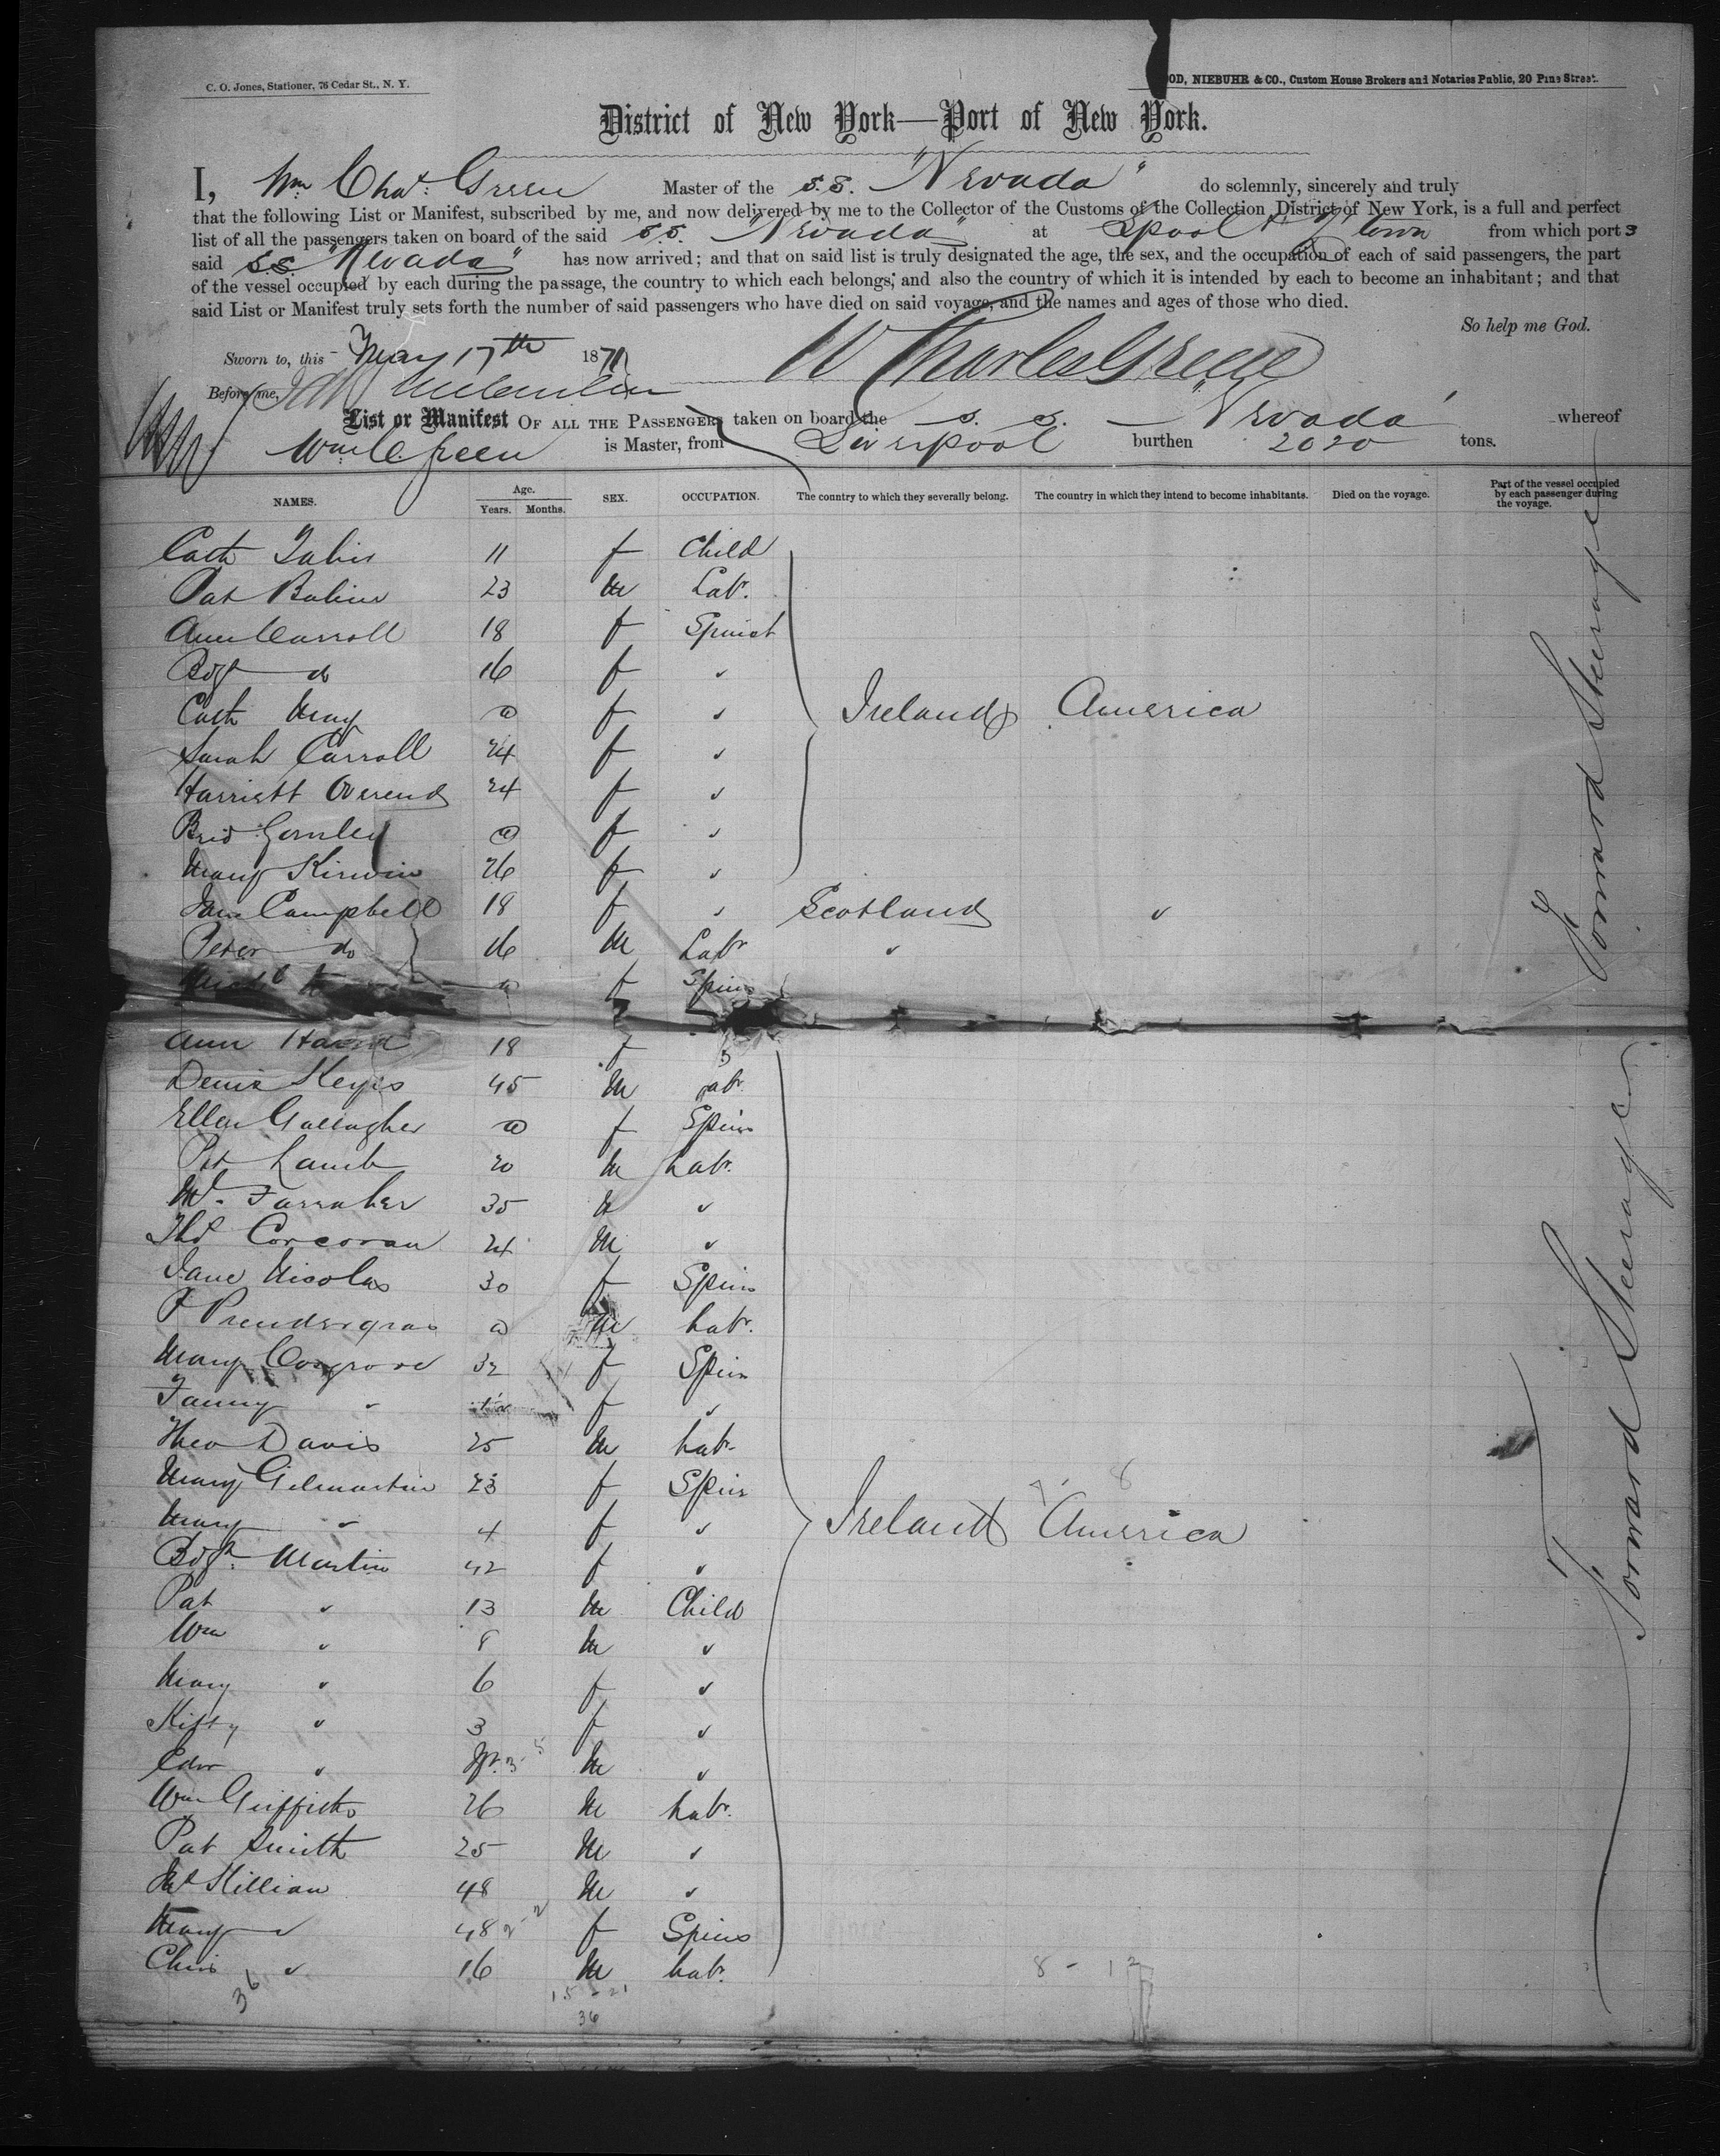 C. O. Jones, Stationer, 76 Cedar St., N. Y.
OD, NIEBUHR & CO., Custom House Brokers and Notaries Public, 20 Pine Street.
District of New York—Port of New York.
I, Wm Chas: Green Master of the S.S. "Nevada" do solemnly, sincerely and truly
that the following List or Manifest, subscribed by me, and now delivered by me to the Collector of the Customs of the Collection District of New York, is a full and perfect
list of all the passengers taken on board of the said S.S. "Nevada" at Lpool & Qtown from which port s
said S.S. "Nevada" has now arrived; and that on said list is truly designated the age, the sex, and the occupation of each of said passengers, the part
of the vessel occupied by each during the passage, the country to which each belongs, and also the country of which it is intended by each to become an inhabitant; and that
said List or Manifest truly sets forth the number of said passengers who have died on said voyage, and the names and ages of those who died.
So help me God.
Sworn to, this May 17th 1871 W Charles Green
Before me,
List or Manifest OF ALL THE PASSENGERS taken on board the S. S. Nevada whereof
Wm C. Green is Master, from Liverpool burthen 2020 tons.
NAMES. Age. Years. Months. SEX. OCCUPATION. The country to which they severally belong. The country in which they intend to become inhabitants. Died on the voyage. Part of the vessel occupied by each passenger during the voyage.
Cath 11 f Child
Pat 23 m Labr.
Ann Carroll 18 f Spinst
Bdgt do 16 f "
Cath May @ f " Ireland America
Sarah Carroll 24 f "
Harriett Overend 24 f "
Brid Gormley @ f "
Mary Kirwin 26 f "
Jane Campbell 18 f " Scotland "
Peter do 16 m Labr "
@ f Spins
Forward Steerage
Ann 18 f "
Denis Keyes 45 m Labr.
Ellen Gallagher @ f Spins
Pat Lamb 20 m Labr.
Ml. Farraher 35 m "
Thos Corcoran 24 m "
Jane Nicolas 30 f Spins
P Prendergras @ m Labr.
Mary Cosgrove 32 f Spins
Fanny " f "
Theo Davis 25 m Labr.
Mary Gilmartin 23 f Spins
Mary " 4 f " Ireland America
Bdgt. Martin 42 f "
Pat " 13 m Child
Wm " 8 m "
Mary " 6 f "
Kitty " 3 f "
Edw " Inft. m "
Wm Griffiths 26 m Labr.
Pat Smith 25 m "
Ml Killian 48 m "
Mary " 48 f Spins
Chris " 16 m Labr.
Forward Steerage
36
15 - 21
36
8 - 12